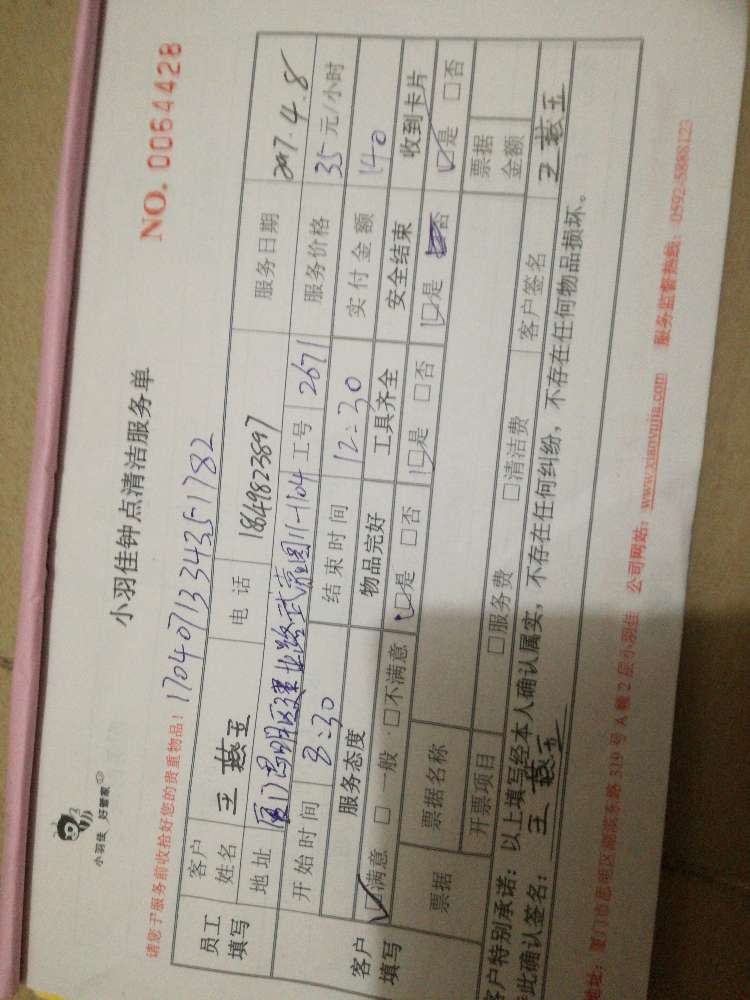 小羽佳 好管家
小羽佳钟点清洁服务单
NO. 0064428
请您于服务前收拾好您的贵重物品! 1704071334351782
员工填写 客户姓名 王燕玉 电话 18649823897 服务日期 2017.4.8
地址 厦门思明区建业路武燕园11-1104 工号 2671 服务价格 35元/小时
开始时间 8:30 结束时间 12:30 实付金额 140
客户填写 服务态度 物品完好 工具齐全 安全结束 收到卡片
☑满意 □一般 □不满意 ☑是 □否 ☑是 □否 ☑是 否 ☑是 □否
票据 票据名称 票据金额
开票项目 □服务费 □清洁费
客户特别承诺: 以上填写经本人确认属实, 不存在任何纠纷, 不存在任何物品损坏。
此确认签名: 王燕玉 客户签名 王燕玉
地址: 厦门市思明区湖滨东路319号A幢2层小羽佳 公司网站: www.xiaoyujia.com 服务监督热线: 0592-5888123